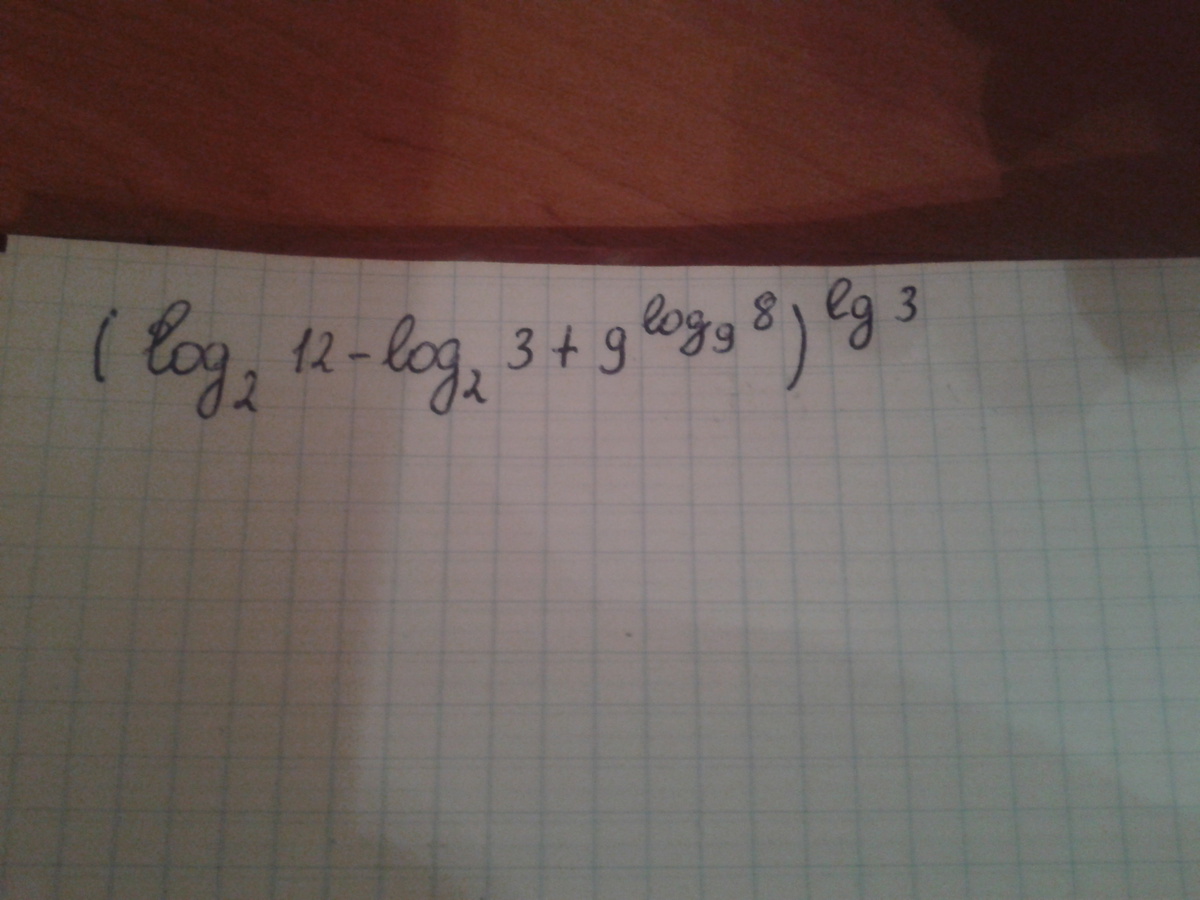 (log₂ 12 - log₂ 3 + 9^(log₉ 8))^(lg 3)